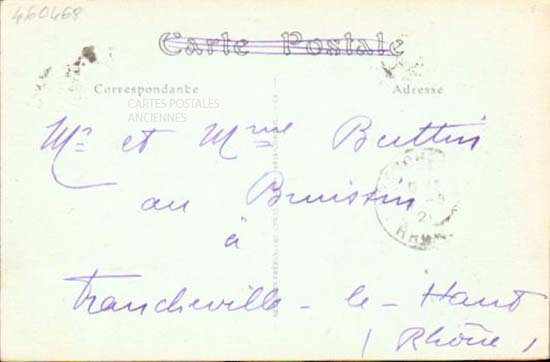 460468
Carte Postale
Correspondance
Adresse
CARTES POSTALES
ANCIENNES
Mr et Mme Buttin
au Bruissin
à
Francheville-le-Haut
(Rhône)